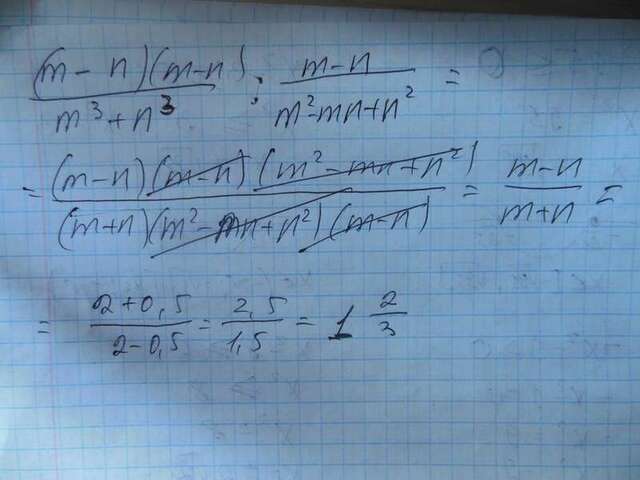 (m-n)(m-n) / m³+n³ : m-n / m²-mn+n² =
= (m-n)(m-n)(m²-mn+n²) / (m+n)(m²-mn+n²)(m-n) = m-n / m+n =
= 2+0,5 / 2-0,5 = 2,5 / 1,5 = 1 2/3